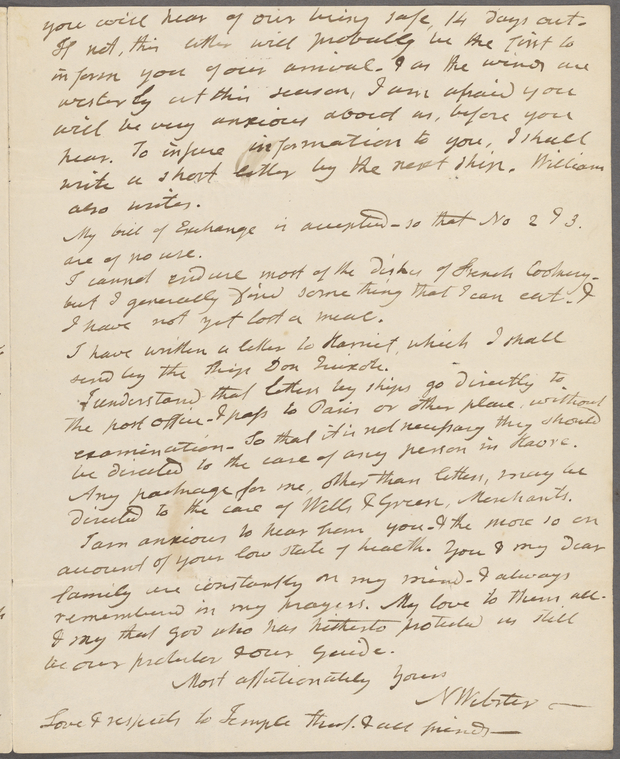 you will hear of our being safe, 14 days out.
If not, this letter will probably be the first to
inform you of our arrival. & as the winds are
westerly at this season, I am afraid you
will be very anxious about us, before you
hear. To insure information to you, I shall
write a short letter by the next ship. William
also writes.
My bill of Exchange is accepted - so that No 2 & 3.
are of no use.
I cannot endure most of the dishes of French Cookery -
but I generally find some thing that I can eat. &
I have not yet lost a meal.
I have written a letter to Harriet, which I shall
send by the ship Don Quixote.
I understand that letters by ships go directly to
the post office - & pass to Paris or other place, without
examination - So that it is not necessary they should
be directed to the care of any person in Havre.
Any package for me, other than letters, may be
directed to the care of Wells & Green, Merchants.
I am anxious to hear from you - & the more so on
account of your low state of health. You & my Dear
family are constantly on my mind - & always
remembered in my prayers. My love to them all -
& may that God who has hitherto protected us still
be our protector & our Guide.
Most affectionately Yours
N Webster
Love & respects to Temple & all friends -